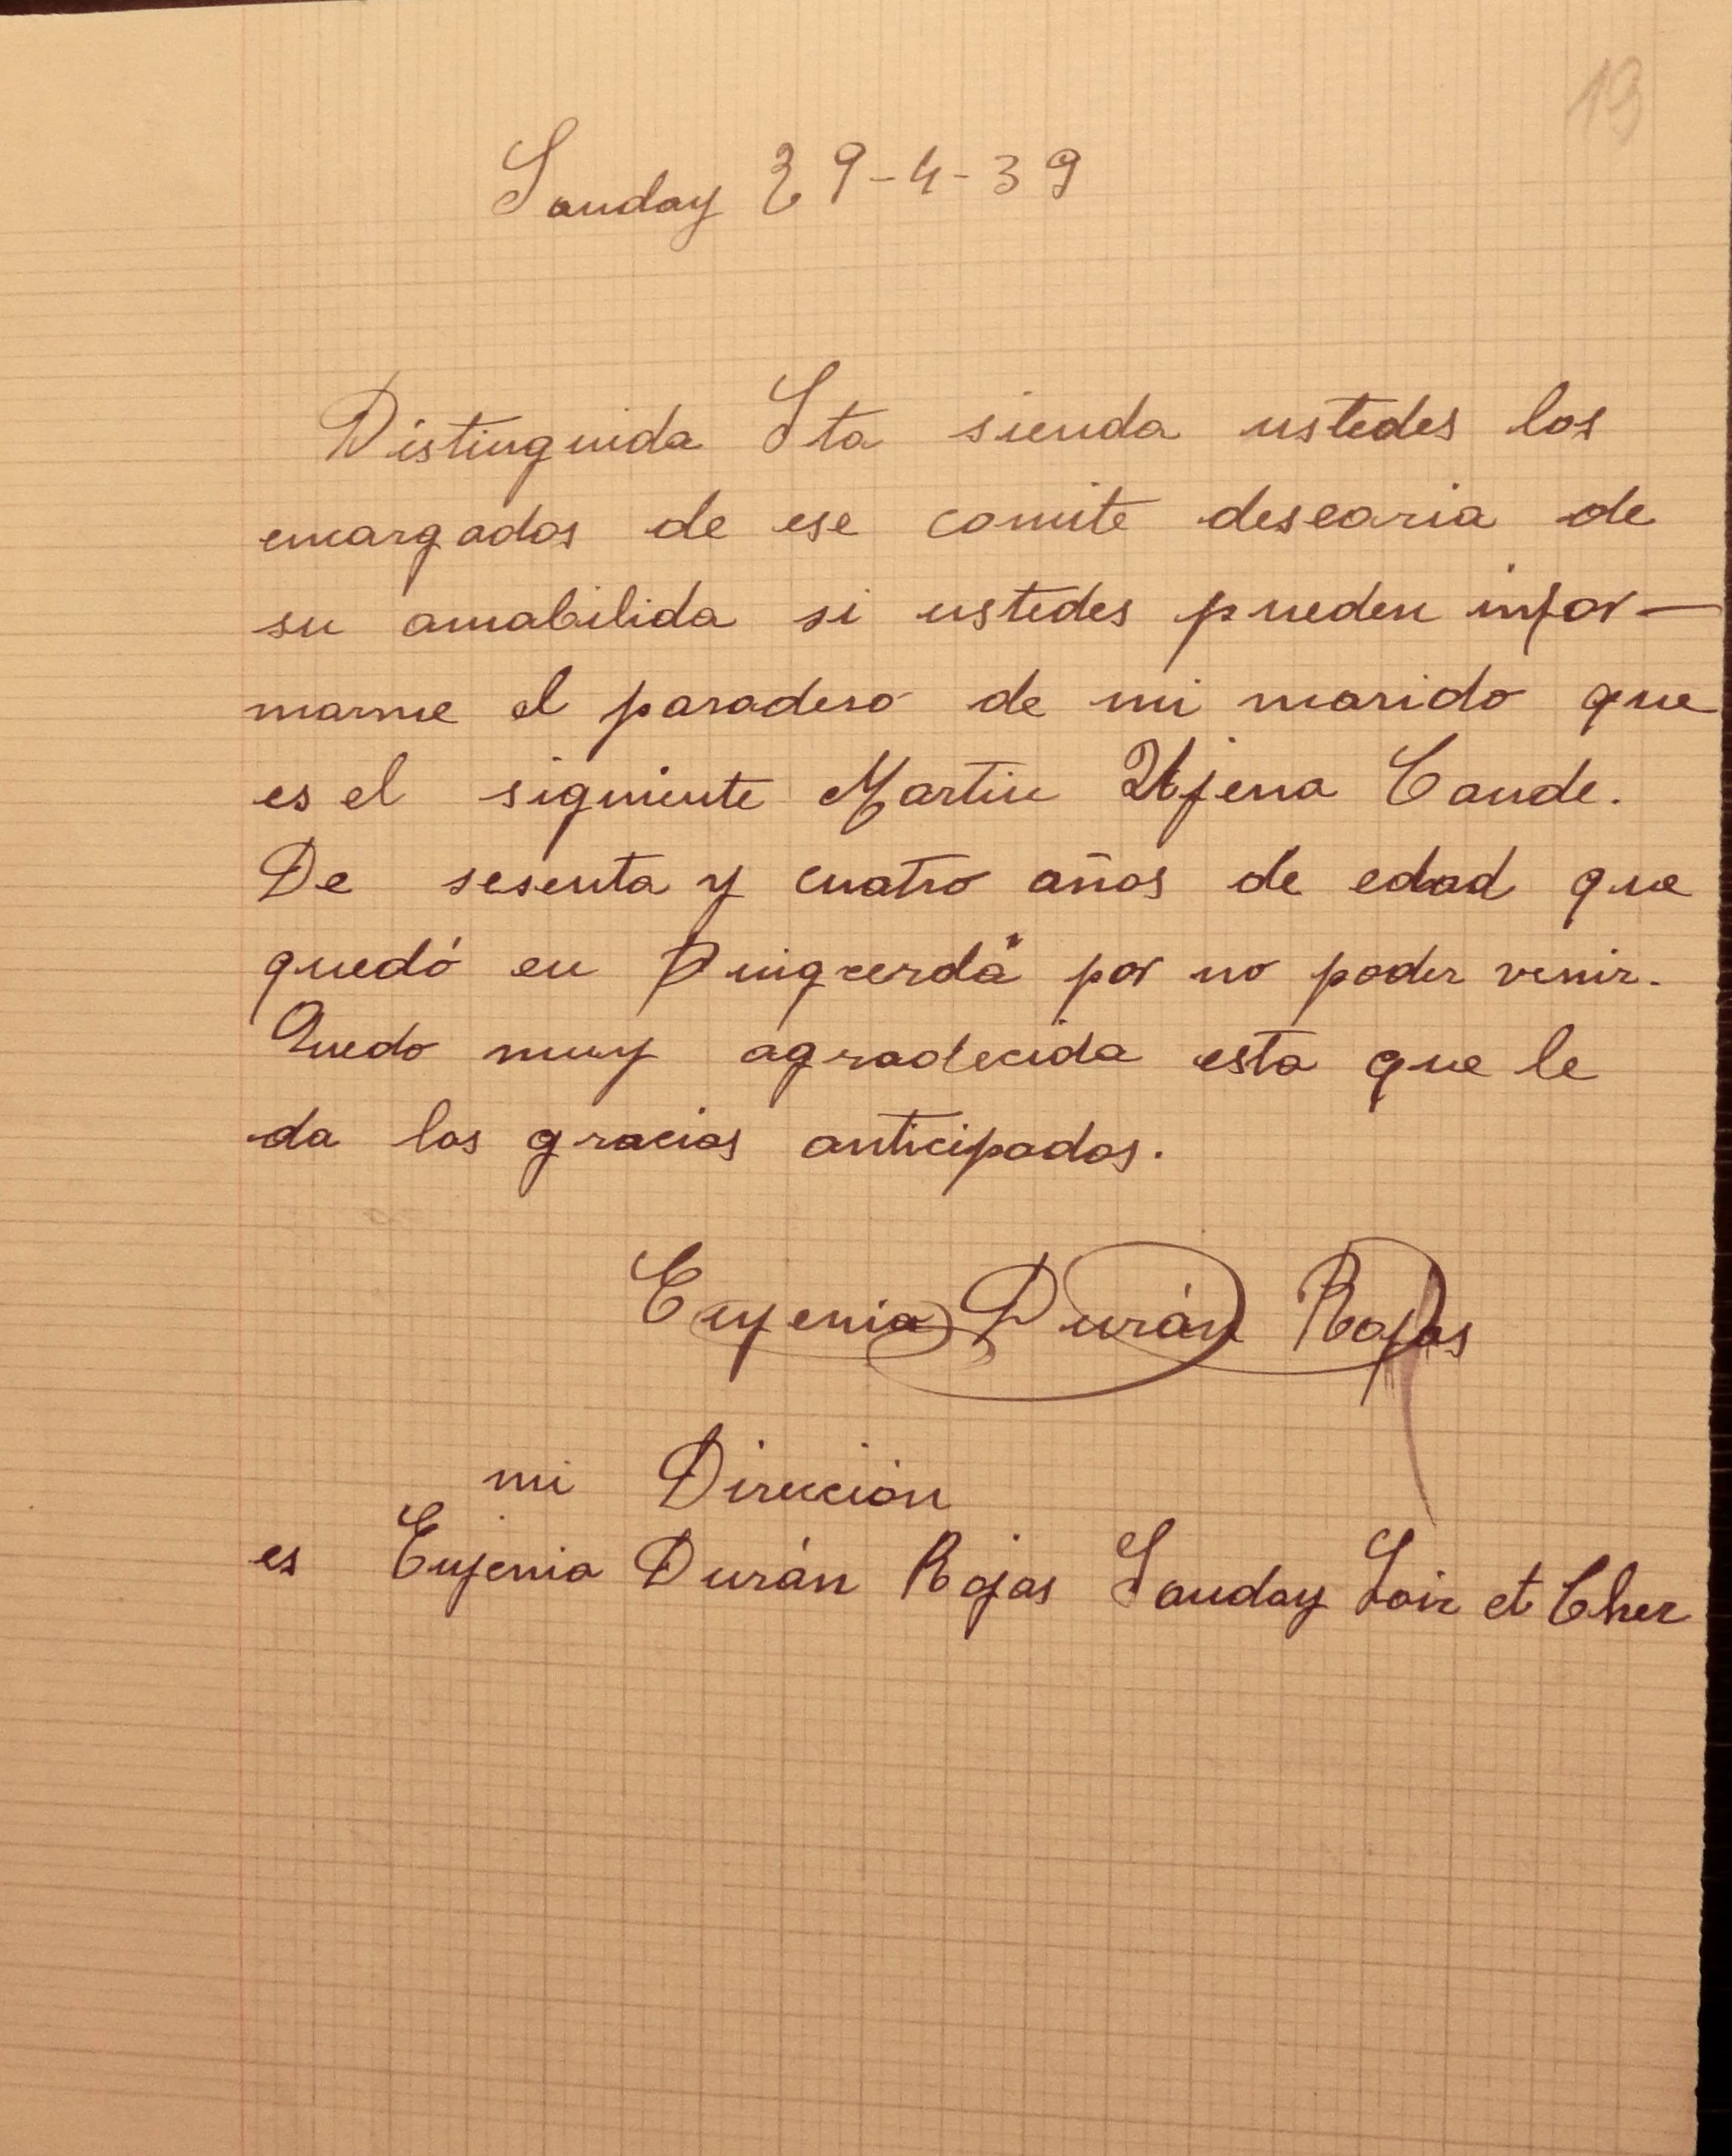 13
Souday 29-4-39
Distinguida Sta sienda ustedes los
encargados de ese comite desearia de
su amabilida si ustedes pueden infor-
marme el paradero de mi marido que
es el siguiente Martin Ujena Conde.
De sesenta y cuatro años de edad que
quedó en Puigcerdá por no poder venir.
Quedo muy agradecida esta que le
da las gracias anticipadas.
Eujenia Durán Rojas
mi Dirección
es Eujenia Durán Rojas Souday Loir et Cher